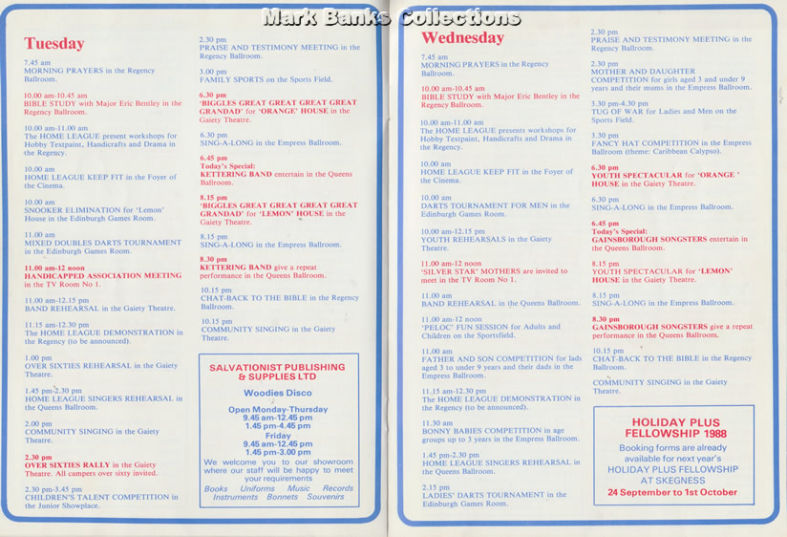 Mark Banks Collections
Tuesday
7.45 am
MORNING PRAYERS in the Regency
Ballroom.
10.00 am-10.45 am
BIBLE STUDY with Major Eric Bentley in the
Regency Ballroom.
10.00 am-11.00 am
The HOME LEAGUE present workshops for
Hobby Textpaint, Handicrafts and Drama in
the Regency.
10.00 am
HOME LEAGUE KEEP FIT in the Foyer of
the Cinema.
10.00 am
SNOOKER ELIMINATION for 'Lemon'
House in the Edinburgh Games Room.
11.00 am
MIXED DOUBLES DARTS TOURNAMENT
in the Edinburgh Games Room.
11.00 am-12 noon
HANDICAPPED ASSOCIATION MEETING
in the TV Room No 1.
11.00 am-12.15 pm
BAND REHEARSAL in the Gaiety Theatre.
11.15 am-12.30 pm
The HOME LEAGUE DEMONSTRATION in
the Regency (to be announced).
1.00 pm
OVER SIXTIES REHEARSAL in the Gaiety
Theatre.
1.45 pm-2.30 pm
HOME LEAGUE SINGERS REHEARSAL in
the Queens Ballroom.
2.00 pm
COMMUNITY SINGING in the Gaiety
Theatre.
2.30 pm
OVER SIXTIES RALLY in the Gaiety
Theatre. All campers over sixty invited.
2.30 pm-3.45 pm
CHILDREN'S TALENT COMPETITION in
the Junior Showplace.
2.30 pm
PRAISE AND TESTIMONY MEETING in the
Regency Ballroom.
3.00 pm
FAMILY SPORTS on the Sports Field.
6.30 pm
'BIGGLES GREAT GREAT GREAT GREAT
GRANDAD' for 'ORANGE' HOUSE in the
Gaiety Theatre.
6.30 pm
SING-A-LONG in the Empress Ballroom.
6.45 pm
Today's Special:
KETTERING BAND entertain in the Queens
Ballroom.
8.15 pm
'BIGGLES GREAT GREAT GREAT GREAT
GRANDAD' for 'LEMON' HOUSE in the
Gaiety Theatre.
8.15 pm
SING-A-LONG in the Empress Ballroom.
8.30 pm
KETTERING BAND give a repeat
performance in the Queens Ballroom.
10.15 pm
CHAT-BACK TO THE BIBLE in the Regency
Ballroom.
10.15 pm
COMMUNITY SINGING in the Gaiety
Theatre.
SALVATIONIST PUBLISHING
& SUPPLIES LTD
Woodies Disco
Open Monday-Thursday
9.45 am-12.45 pm
1.45 pm-4.45 pm
Friday
9.45 am-12.45 pm
1.45 pm-3.00 pm
We welcome you to our showroom
where our staff will be happy to meet
your requirements
Books Uniforms Music Records
Instruments Bonnets Souvenirs
Wednesday
7.45 am
MORNING PRAYERS in the Regency
Ballroom.
10.00 am-10.45 am
BIBLE STUDY with Major Eric Bentley in the
Regency Ballroom.
10.00 am-11.00 am
The HOME LEAGUE presents workshops for
Hobby Textpaint, Handicrafts and Drama in
the Regency.
10.00 am
HOME LEAGUE KEEP FIT in the Foyer of
the Cinema.
10.00 am
DARTS TOURNAMENT FOR MEN in the
Edinburgh Games Room.
10.00 am-12.15 pm
YOUTH REHEARSALS in the Gaiety
Theatre.
11.00 am-12 noon
'SILVER STAR' MOTHERS are invited to
meet in the TV Room No 1.
11.00 am
BAND REHEARSAL in the Queens Ballroom.
11.00 am-12 noon
'PELOC' FUN SESSION for Adults and
Children on the Sportsfield.
11.00 am
FATHER AND SON COMPETITION for lads
aged 3 to under 9 years and their dads in the
Empress Ballroom.
11.15 am-12.30 pm
The HOME LEAGUE DEMONSTRATION in
the Regency (to be announced).
11.30 am
BONNY BABIES COMPETITION in age
groups up to 3 years in the Empress Ballroom.
1.45 pm-2.30 pm
HOME LEAGUE SINGERS REHEARSAL in
the Queens Ballroom.
2.15 pm
LADIES' DARTS TOURNAMENT in the
Edinburgh Games Room.
2.30 pm
PRAISE AND TESTIMONY MEETING in the
Regency Ballroom.
2.30 pm
MOTHER AND DAUGHTER
COMPETITION for girls aged 3 and under 9
years and their mums in the Empress Ballroom.
3.30 pm-4.30 pm
TUG OF WAR for Ladies and Men on the
Sports Field.
3.30 pm
FANCY HAT COMPETITION in the Empress
Ballroom (theme: Caribbean Calypso).
6.30 pm
YOUTH SPECTACULAR for 'ORANGE '
HOUSE in the Gaiety Theatre.
6.30 pm
SING-A-LONG in the Empress Ballroom.
6.45 pm
Today's Special:
GAINSBOROUGH SONGSTERS entertain in
the Queens Ballroom.
8.15 pm
YOUTH SPECTACULAR for 'LEMON'
HOUSE in the Gaiety Theatre.
8.15 pm
SING-A-LONG in the Empress Ballroom.
8.30 pm
GAINSBOROUGH SONGSTERS give a repeat
performance in the Queens Ballroom.
10.15 pm
CHAT-BACK TO THE BIBLE in the Regency
Ballroom.
COMMUNITY SINGING in the Gaiety
Theatre.
HOLIDAY PLUS
FELLOWSHIP 1988
Booking forms are already
available for next year's
HOLIDAY PLUS FELLOWSHIP
AT SKEGNESS
24 September to 1st October